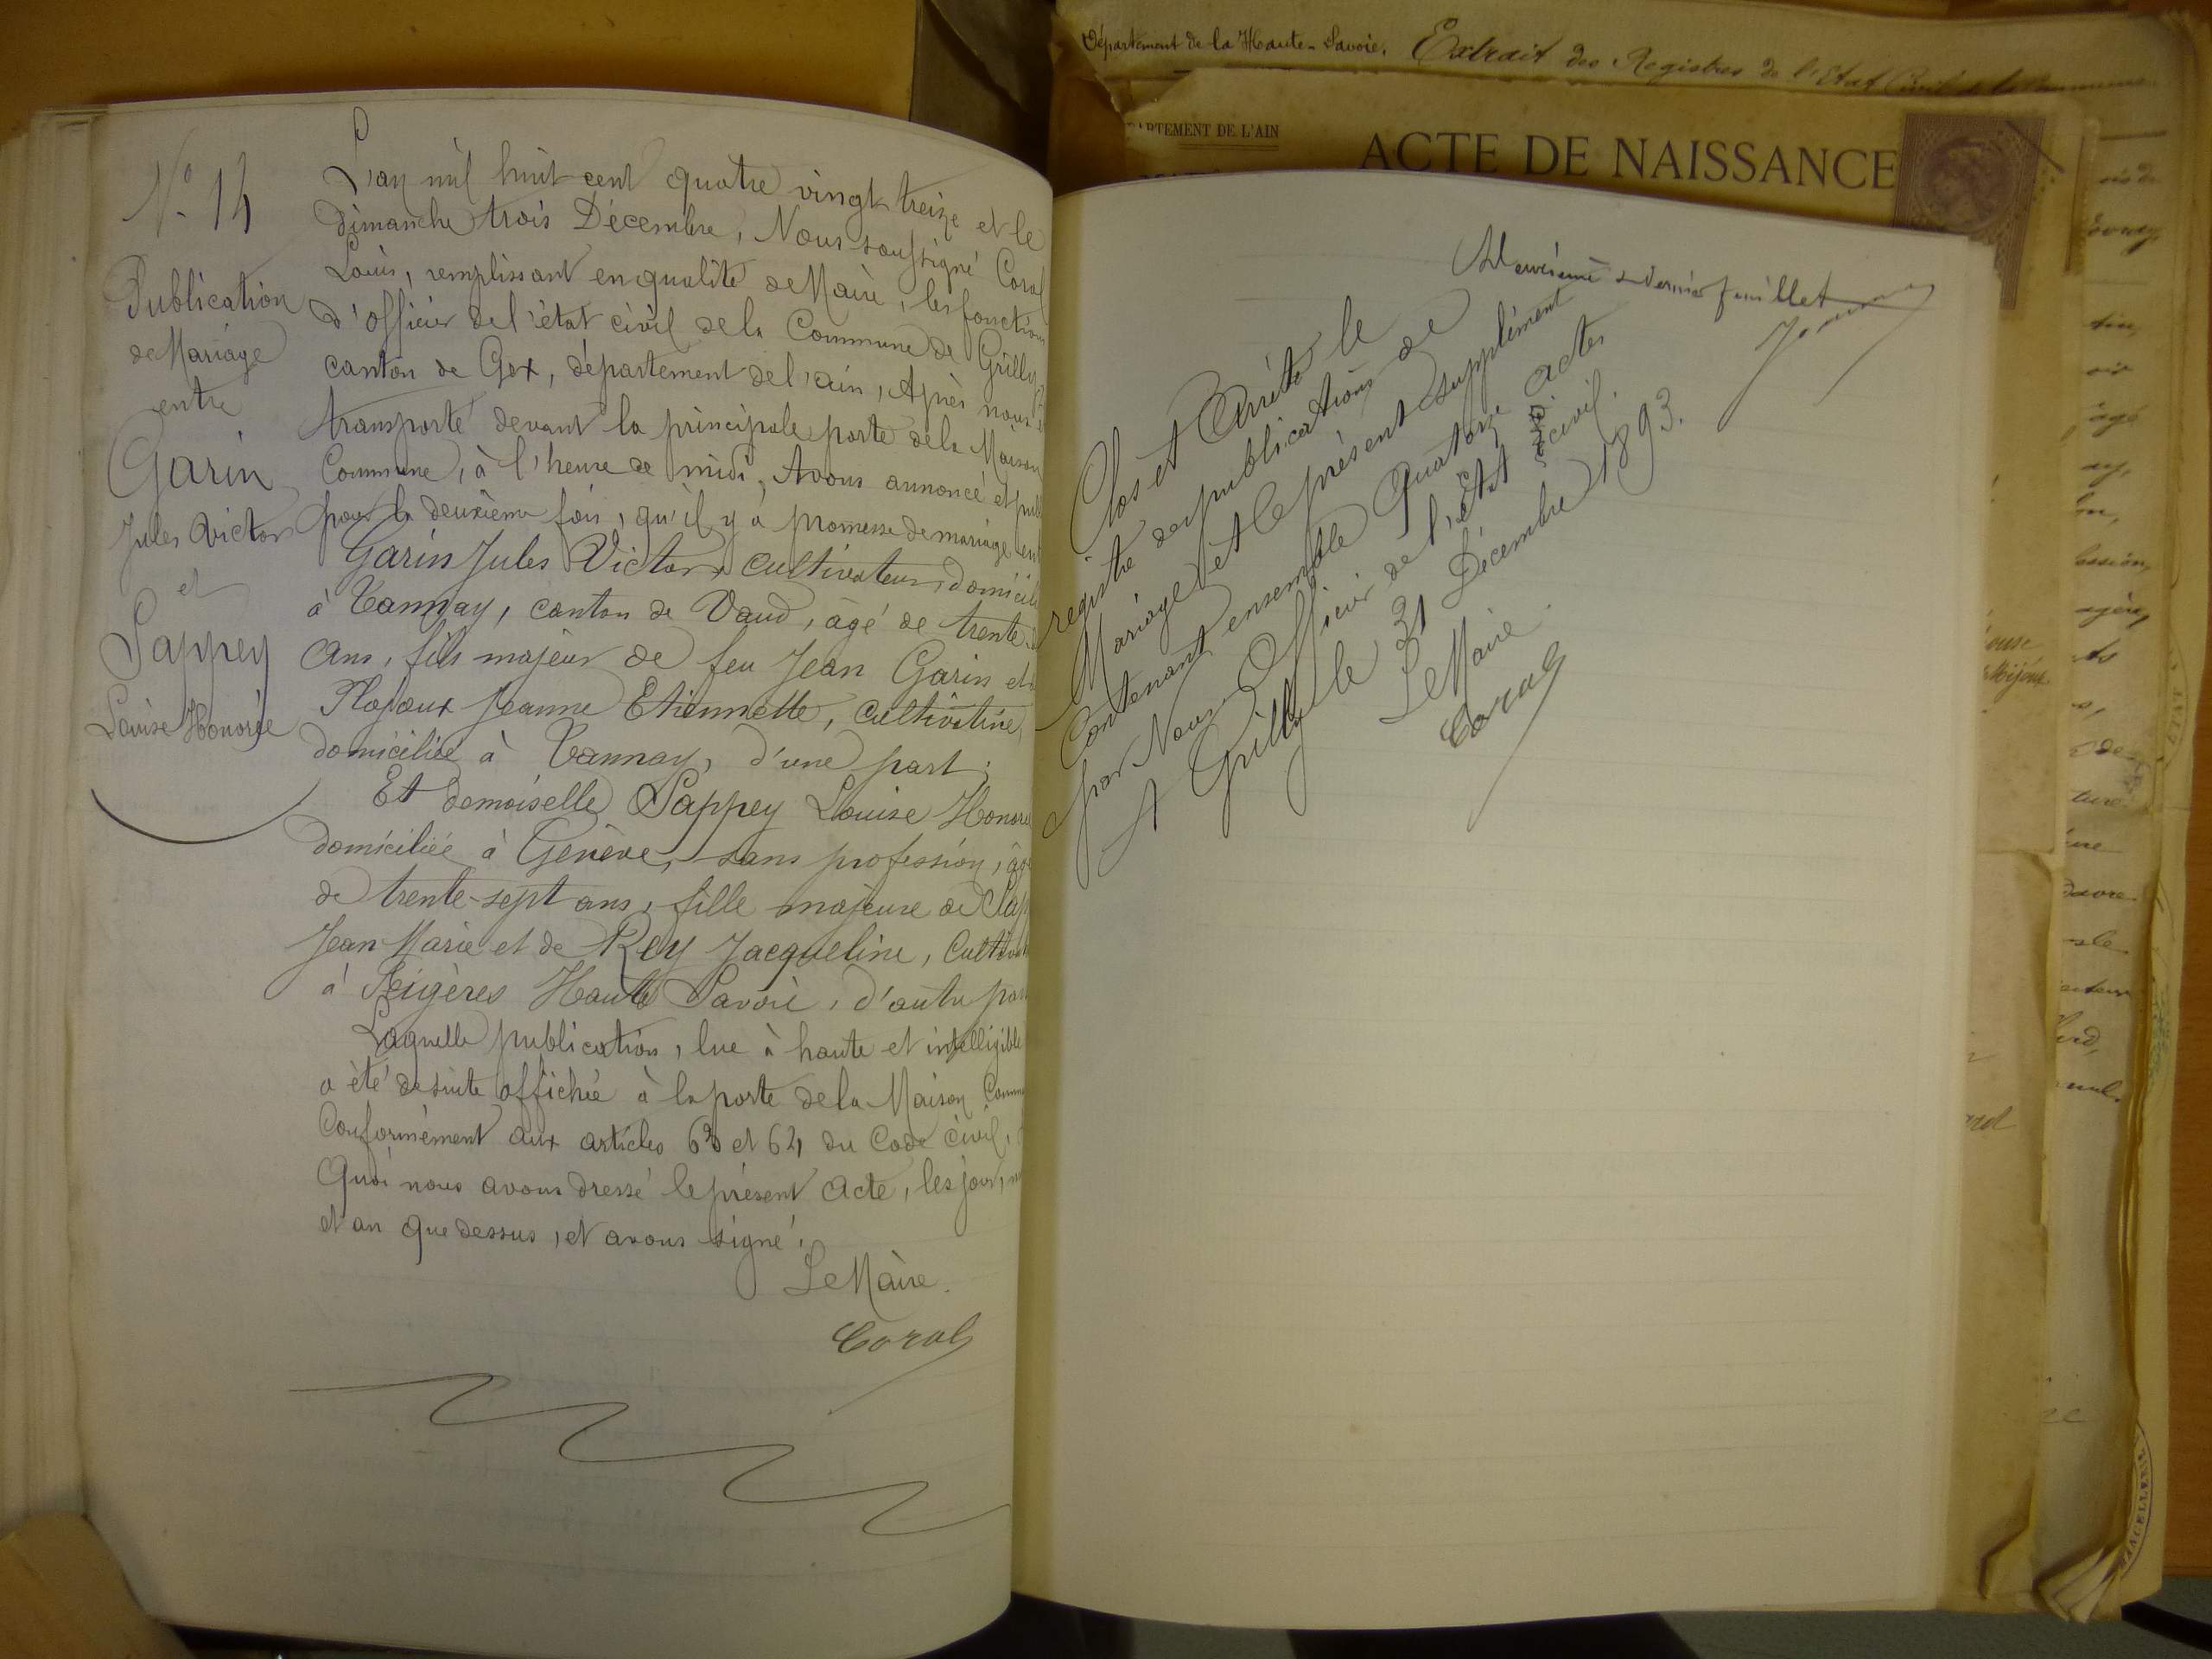 Département de la Haute-Savoie. Extrait des Registres de l'Etat Civil de la Commune
ARTEMENT DE L'AIN
ACTE DE NAISSANCE
N° 14
Publication
de Mariage
entre
Garin
Jules Victor
et
Sappey
Louise Honorée
L'an mil huit cent quatre vingt treize et le
dimanche trois Décembre, Nous soussigné Coral
Louis, remplissant en qualité de Maire, les fonctions
d'officier de l'état civil de la Commune de Grilly
canton de Gex, département de l'ain, Après nous
transporté devant la principale porte de la Maison
Commune, à l'heure de midi, Avons annoncé et publ
pour la deuxième fois, qu'il y a promesse de mariage en
Garin Jules Victor, cultivateur, domicil
à Tannay, canton de Vaud, âgé de trente
ans, fils majeur de feu Jean Garin et
Jeanne Etiennette, cultivatrice,
domiciliée à Tannay, d'une part;
Et demoiselle Sappey Louise Honoré
domiciliée à Genève, sans profession, âgé
de trente-sept ans, fille majeure de Sap
Jean Marie et de Rey Jacqueline, Cultivat
à Feigères Haute Savoie, d'autre par
Laquelle publication, lue à haute et intelligible
a été de suite affichée à la porte de la Maison Comm
Conformément aux articles 63 et 64 du Code civil,
Quoi nous avons dressé le présent acte, les jour, m
et an que dessus, et avons signé.
Le Maire.
Coral
et dernier feuillet
Clos et Arrêté le
registre des publications de
Mariage et le présent supplément
Contenant ensemble Quatorze actes
par Nous Officier de l'Etat civil.
A Grilly le 31 Décembre 1893.
Le Maire
Coral